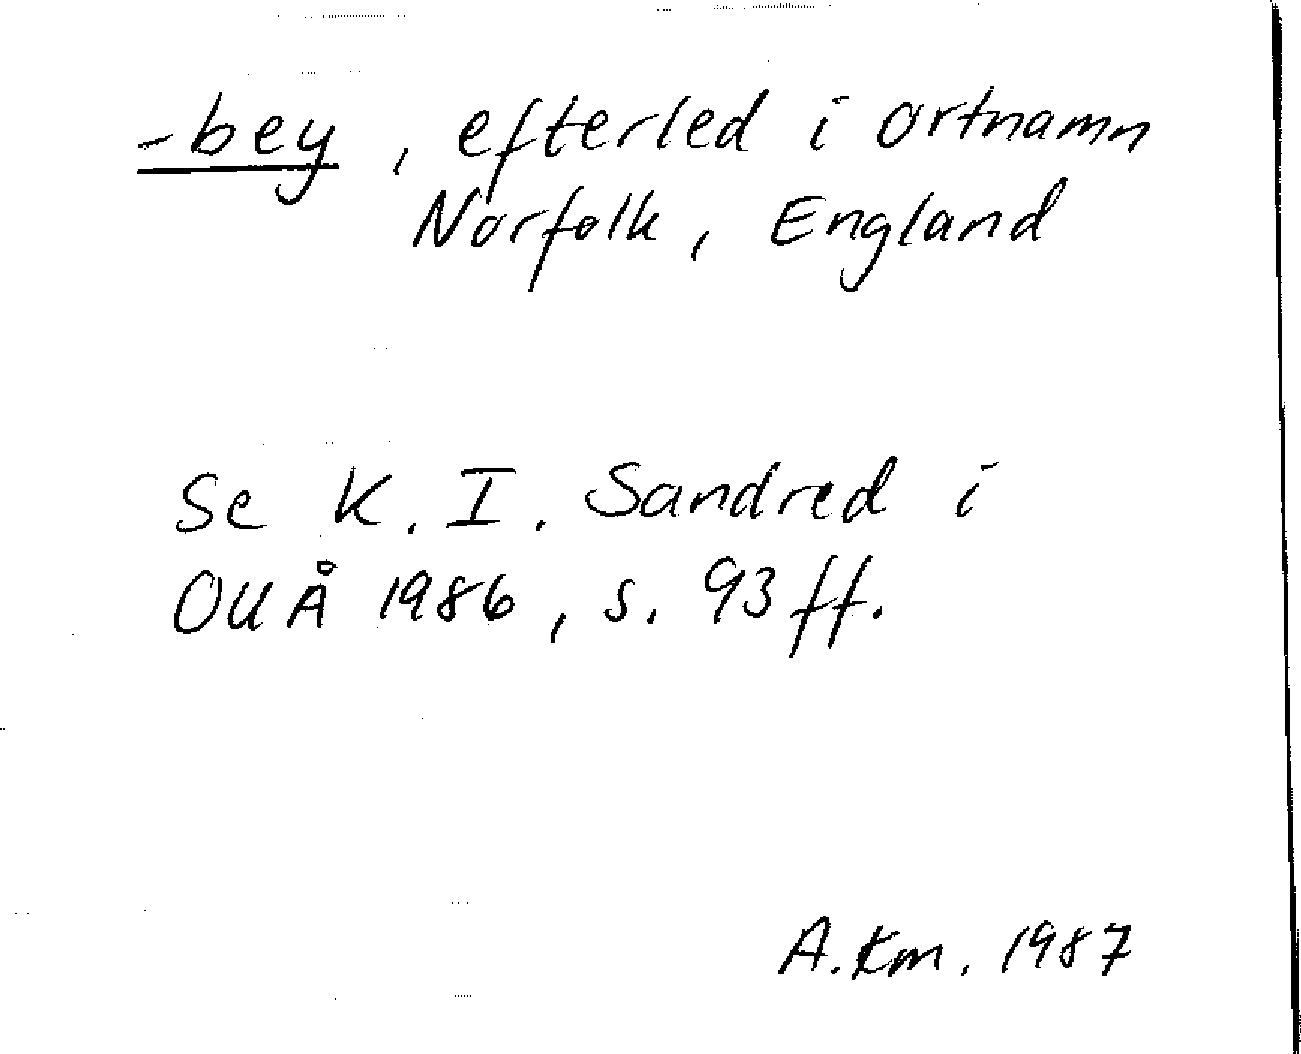 -bey, efterled i ortnamn
Norfolk, England
Se K. I. Sandred i
OUÅ 1986, s. 93 ff.
A. Km. 1987